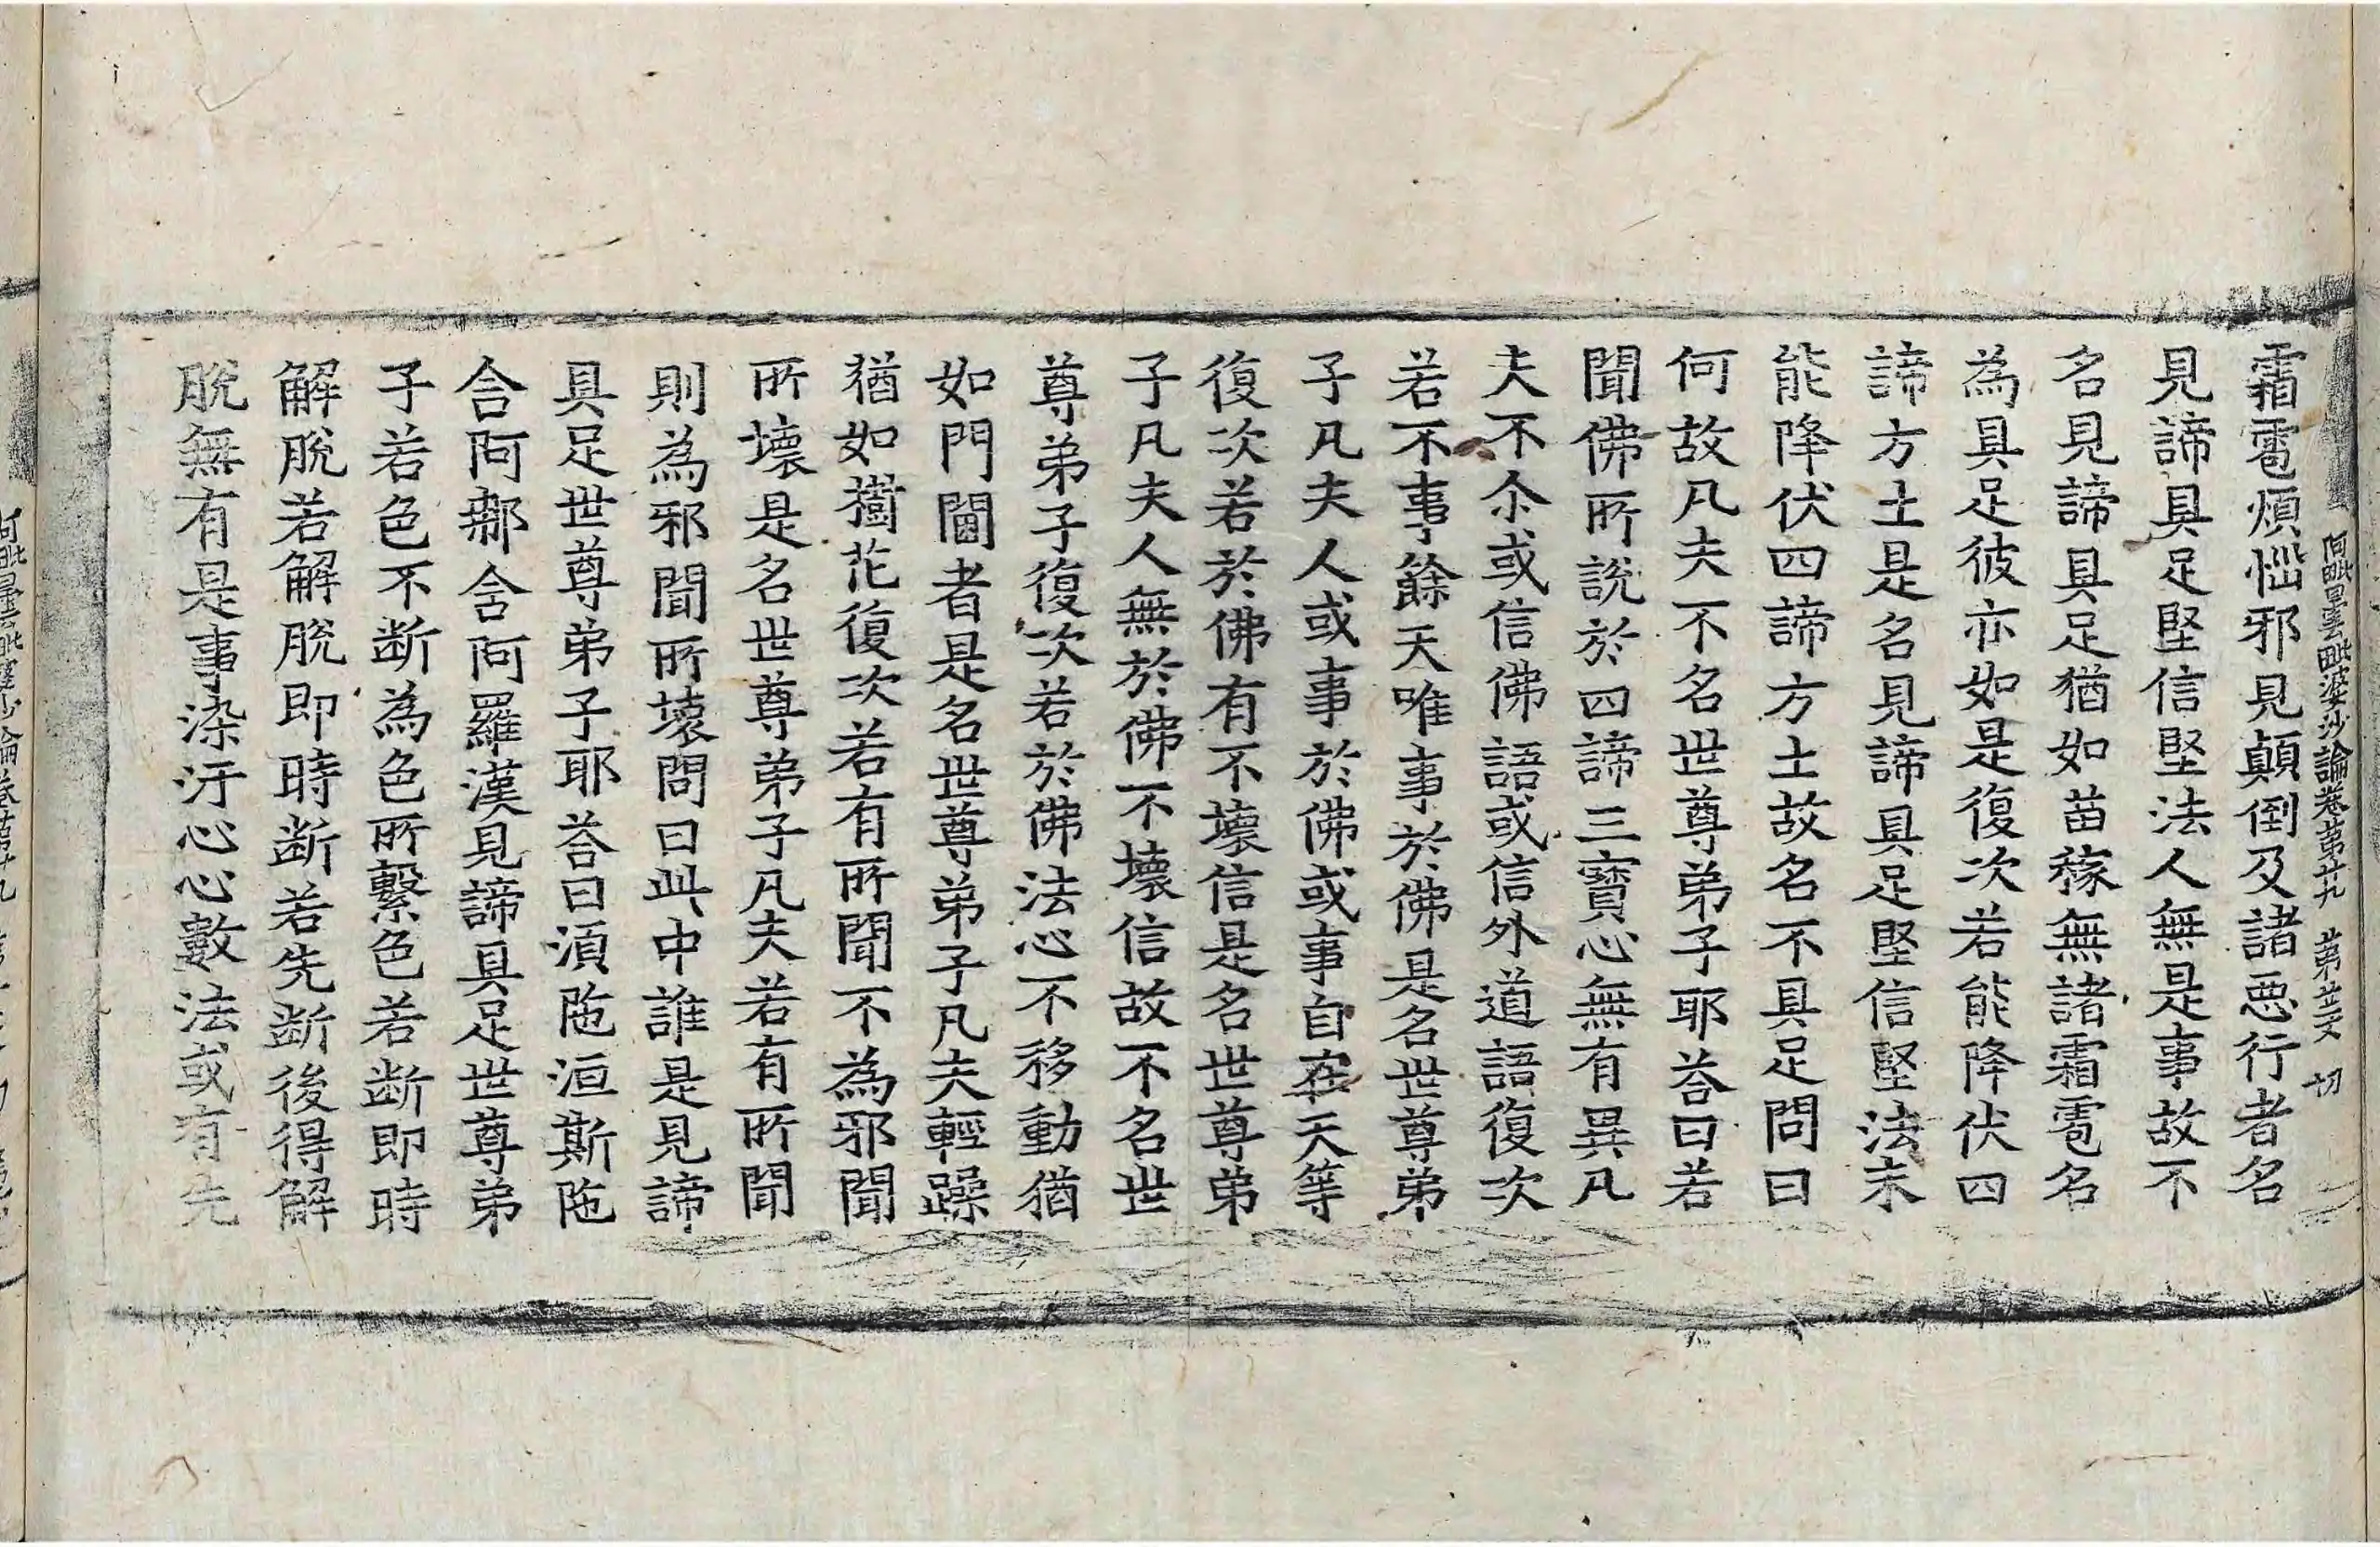 阿毗曇毗婆沙論卷第廿九 第廿文 切
霜雹煩惱邪見顛倒及諸惡行者名
見諦具足堅信堅法人無是事故不
名見諦具足猶如苗稼無諸霜雹名
為具足彼亦如是復次若能降伏四
諦方土是名見諦具足堅信堅法未
能降伏四諦方土故名不具足問曰
何故凡夫不名世尊弟子耶荅曰若
聞佛所說於四諦三寶心無有異凡
夫不尒或信佛語或信外道語復次
若不事餘天唯事於佛是名世尊弟
子凡夫人或事於佛或事自在天等
復次若於佛有不壞信是名世尊弟
子凡夫人無於佛不壞信故不名世
尊弟子復次若於佛法心不移動猶
如門閫者是名世尊弟子凡夫輕躁
猶如樹花復次若有所聞不為邪聞
所壞是名世尊弟子凡夫若有所聞
則為邪聞所壞問曰此中誰是見諦
具足世尊弟子耶荅曰須陁洹斯陁
含阿那含阿羅漢見諦具足世尊弟
子若色不断為色所繫色若断即時
解脫若解脫即時断若先断後得解
脫無有是事染汙心心數法或有先